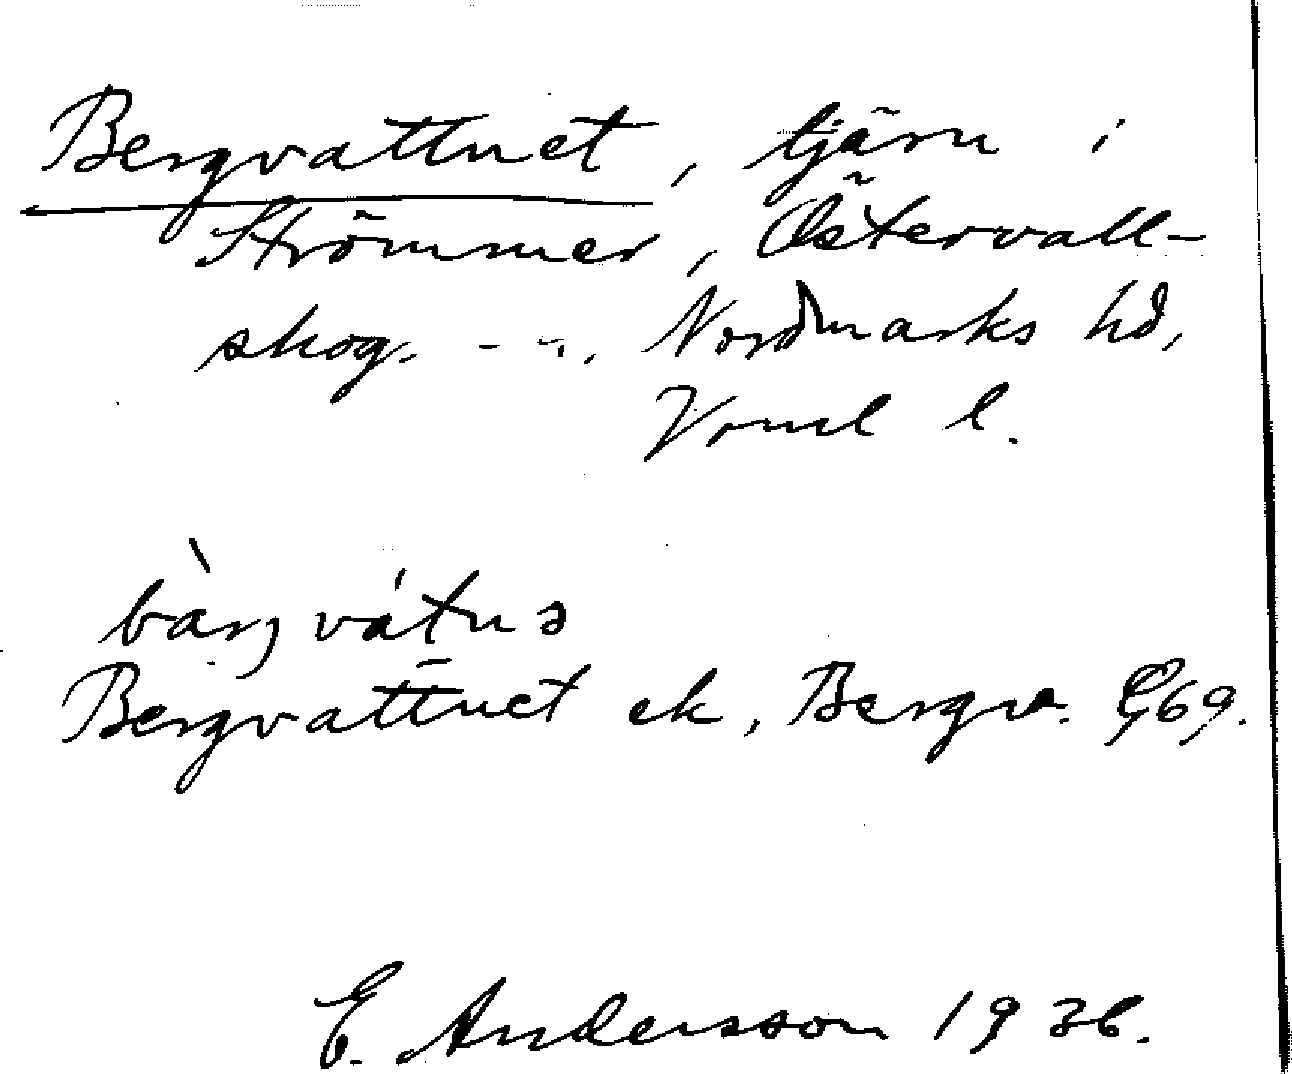 Bergvattnet, tjärn i
Strömmer, Östervall-
skog. - - . Nordmarks hd,
Vrml l.
bàrjvátnə
Bergvattnet ek, Bergv. 69.
E. Andersson 1936.